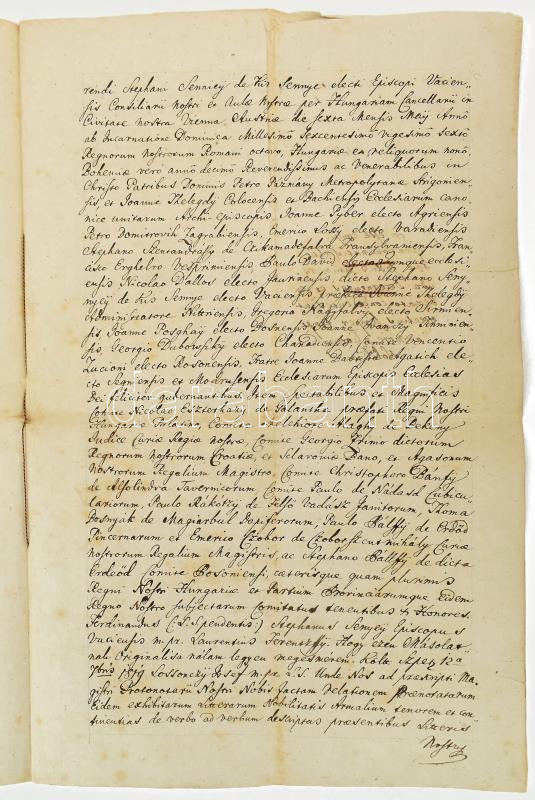 rendi Stephani Senniey de Kis Sennye electi Episcopi Vacien-
sis Consiliarii nostri et Aulæ nostræ per Hungariam Cancellarii in
Civitate nostra Vienna Austriæ die sexta Mensis Maij Annô
ab Incarnatione Dominica Millesimô Sexcentesimô Vigesimô Sextô
Regnorum nostrorum Romani octavo, Hungariæ et reliquorum nonô,
Bohemiæ vero annô decimô Reverendissimis ac Venerabilibus in
Christo Patribus Dominis Petro Pazmany Metropolytanæ Strigonien-
sis et Joanne Thelegdy Colocensis et Bachiensis Ecclesiarum cano-
nice unitarum Archi-Episcopis, Joanne Pyber electo Agriensis
Petro Domitrovich Zagrabiensis, Emerico Lossy electo Varadiensis
Stephano Szentandrásy de Csikmadefalva Transylvaniensis, Fran-
cisco Erghelro Vesprimiensis, Paulo David Quinque ecclesi-
ensis Nicolao Dallos electo Jauriensis, dicto Stephano Seny-
nyey de Kis Sennye electo Vaciensis Joanne Thelegdy
Administratore Nittriensis, Gregorio Nagyfalvy electo Sirmien-
sis Joanne Posghay electo Bosnensis Joanne Tinnien-
sis, Georgio Dubowszky electo Chanadiensis, Comite Vencentio
Zucconi electo Rosonensis, Fratre Joanne ele-
cto Segniensis et Modrusiensis Ecclesiarum Episcopis Ecclesias
Dei feliciter gubernantibus Item Spectabilibus et Magnificis
Comite Nicolao Eszterházy de Galantha præfati Regni Nostri
Hungariæ Palatino Comite Melchiore Alaghy de Bekény
Judice Curiæ Regiæ nostræ, Comite Georgio Zrinio dictorum
Regnorum nostrorum Croatiæ et Sclavoniæ Bano, et Agasonum
nostrorum Regalium Magistro, Comite Christophero Bánfy
de Alsolindva Tavernicorum Comite Paulo de Nádasd Cubicu-
lariorum, Paulo Rákotzy de Felső Vadász Janitorum, Thoma
Bosnyak de Magiarbul Dapiferorum, Paulo Palffy de Erdőd
Pincernarum et Emerico Czobor de Czoborszentmihály Curiæ
nostrorum Regalium Magistris, ac Stephano Pállfy de dicta
Erdeőd Comite Posoniensi, cæterisque quam plurimis
Regni Nostri Hungariæ et Partium Provinciarumque Eidem
Regno Nostro subjectarum Comitatus tenentibus et Honores.
Ferdinandus (:L.S. pendentis:) Stephanus Senyei Episcopus
Vaciensis m.pr. Laurentius Ferentsffy. Hogy ezen Másolat-
nak Originalissa nálam legyen megesmérem. Költ
1819 Jósef m.pr. L.S. Unde Nos ad præscripti Ma-
gistri Protonotarii Nostri Nobis factam Relationem Prænotatarum
Eidem exhibitarum Litterarum Nobilitatis Armalium tenorem et con-
tinentias de verbo ad verbum descriptas præsentibus Litteris
Nostris